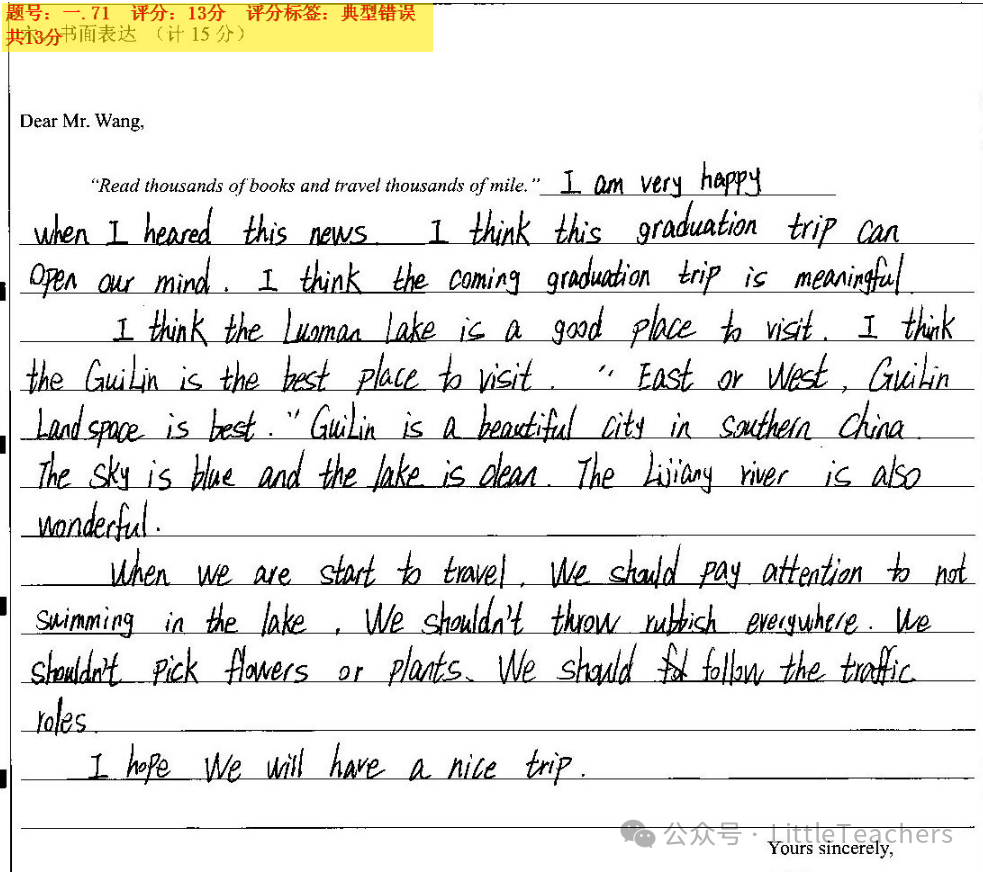 题号：一.71 评分：13分 评分标签：典型错误
共13分
书面表达 （计 15 分）
Dear Mr. Wang,
“Read thousands of books and travel thousands of mile.” I am very happy
when I heared this news. I think this graduation trip can
open our mind. I think the coming graduation trip is meaningful.
I think the Luoman Lake is a good place to visit. I think
the GuiLin is the best place to visit. “East or West, GuiLin
Landspace is best.” GuiLin is a beautiful city in Southern China.
The sky is blue and the lake is clean. The Lijiang river is also
wonderful.
When we are start to travel, We should pay attention to not
swimming in the lake. We shouldn't throw rubbish everywhere. We
shouldn't pick flowers or plants. We should follow the traffic
roles.
I hope We will have a nice trip.
公众号 · LittleTeachers
Yours sincerely,